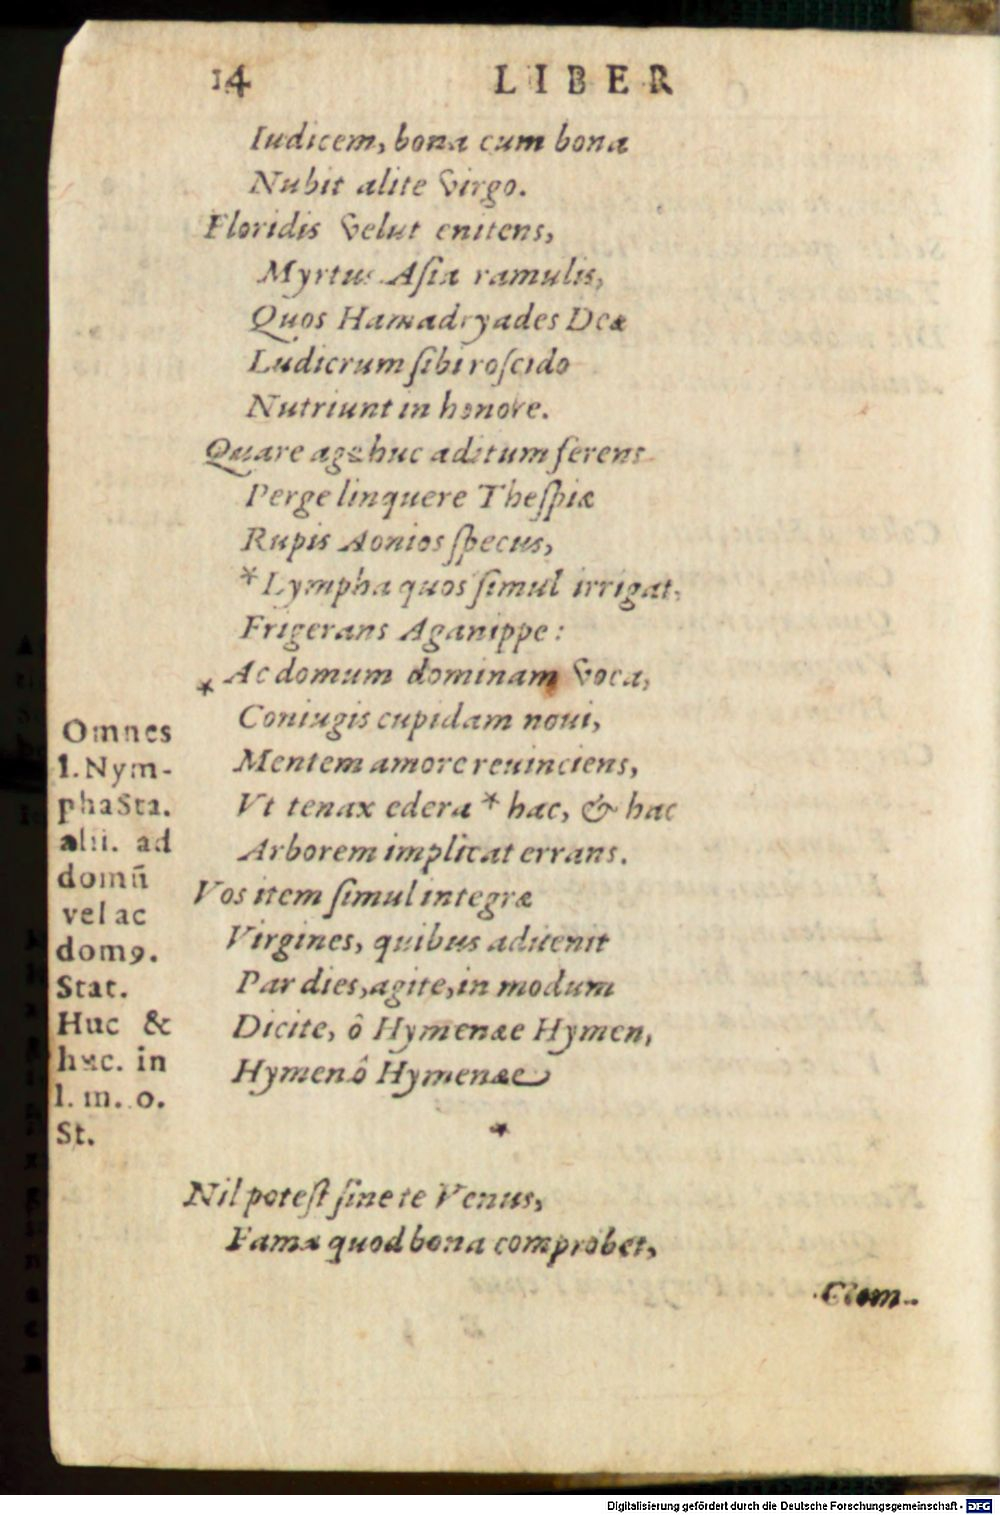 14 LIBER
Iudicem, bona cum bona
Nubit alite virgo.
Floridis velut enitens,
Myrtus Asia ramulis,
Quos Hamadryades Deæ
Ludicrum sibi roscido
Nutriunt in honore.
Quare age huc aditum ferens
Perge linquere Thespiæ
Rupis Aonios specus,
* Lympha quos simul irrigat,
Frigerans Aganippe:
* Ac domum dominam voca,
Coniugis cupidam noui,
Mentem amore reuinciens,
Vt tenax edera * hac, & hac
Arborem implicat errans.
Vos item simul integræ
Virgines, quibus aduenit
Par dies, agite, in modum
Dicite, ô Hymenæe Hymen,
Hymen ô Hymenæe
*
Nil potest sine te Venus,
Fama quod bona comprobet,
Com-
Omnes
l. Nym-
pha Sta.
alii. ad
domū
vel ac
domꝰ.
Stat.
Huc &
huc. in
l. m. o.
St.
Digitalisierung gefördert durch die Deutsche Forschungsgemeinschaft - DFG